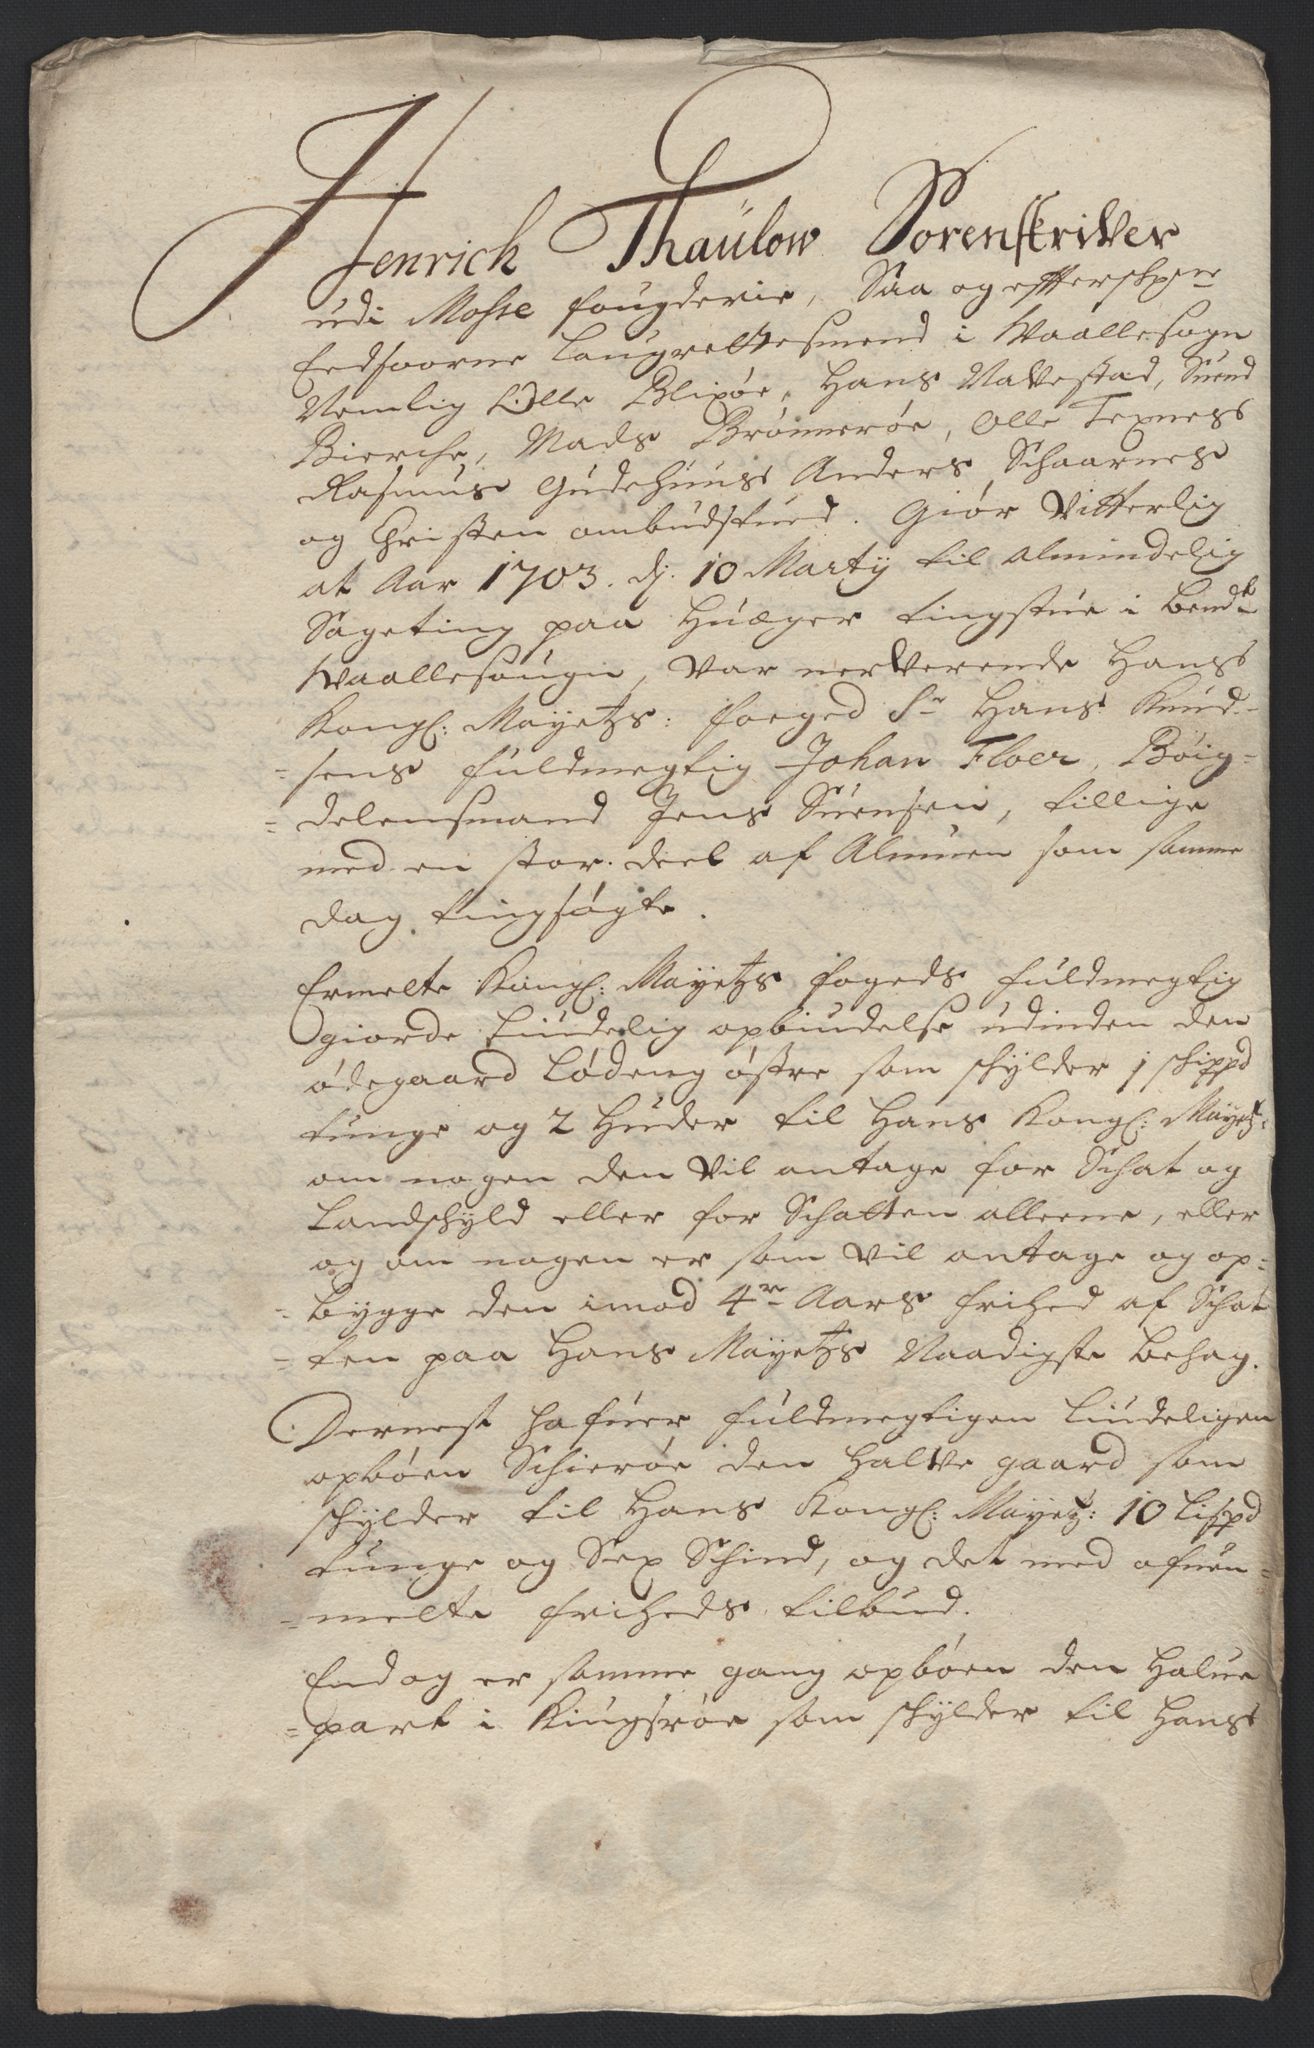 Henrich Thaulow Sorenskriver
udi Mosse fougderie, Saa og effterskrne
Eedsoorne Laugrettesmend i Waallesogn
Nemlig Olle Blixöe, Hans Navestad, Suend
Bierche, Mads Brönneröe, Olle Texness
Rasmus Gudehuus Anders Schaarnes
og Christen ombudstued. Giör Vitterlig
at Aar 1703. dj. 10 Marty til almindelig
Sageting paa Huæger tingstue i bemdte
Waallesougn, Var nerVerende Hans
Kongl: Mayetzs: foeged Sr Hans Knud-
-sens fuldmegtig Johan Floer, Böig-
-delensmand Jens Suensen, tillige
med en stor deel af Almuen som samme
dag tingsögte.
Ermelte Kongl: Mayetzs fogeds fuldmegtig
giorde Liudelig opbiudelse udinden den
ödegaard Lödeng östre som schylder 1 schippd
tunge og 2 Huder til Hans Kongl: Mayetz:
om nogen den Vil antage for Schat og
Landschyld eller for Schatten alleene, eller
og om nogen er som Vil antage og op-
-bygge den imod 4re Aars frihed af Schat
-ten paa Hans Mayetzs Naadigste behag.
Dernest hafuer fuldmegtigen Liudeligen
opböen Schieröe den halVe gaard som
schylder til Hans Kongl: Mayetz: 10 Lispd
tunge og Sex Schind, og det med ofuen-
-melte friheds tilbud.
End og er samme gang opböen den halue
-part i Kiugsröe som schylder til Hans